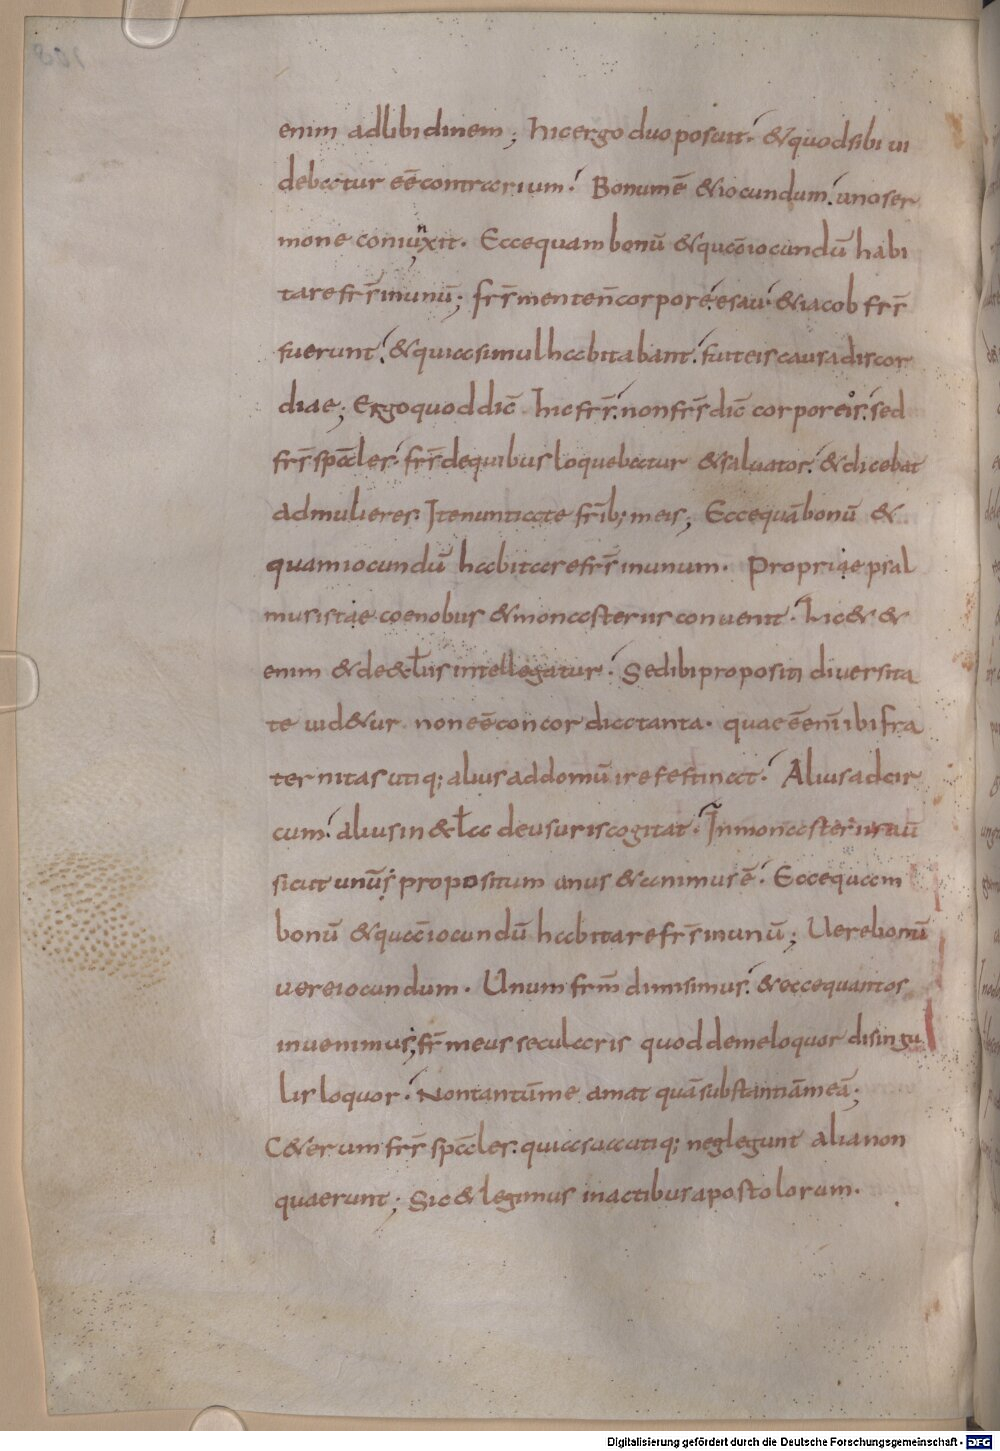 enim adlibidinem; hicergo duo posuit. &quodsibi ui
debatur eē contrarium. Bonumē &iocundum. uno ser
mone coniunxit. Ecce quam bonū &quā iocundū habi
tare frs̄ inunū; frs̄ menteñ corpore. esau. &iacob frs̄
fuerunt. &quia simul habitabant. fuit eis causa discor
diae; Ergo quod dic̄ hic frs̄. non frs̄ dic̄ corporeos. sed
frs̄ sp̄ales. frs̄ de quibus loquebatur &saluator. &dicebat
admulieres. Ite nuntiate frib; meis; Ecce quā bonū &
quam iocundū habitare frs̄ inunum. Propriae psal
mus iste coenobiis &monasteriis conuenit. hic& &
enim &de&l̄iis intellegatur. Sed ibi propositi diuersita
te uid&ur non eē concordia tanta. quae ē enī ibi fra
ternitas utiq; alius ad domū ire festinat. Alius ad cir
cum. alius in &l̄a de usuris cogitat. In monasteriis aū
sicut unus propositum unus &animus ē. Ecce quam
bonū &quā iocundū habitare frs̄ inunū; Uere bonū
uere iocundum. Unum frm̄ dimisimus. &ecce quantos
inuenimus; fr̄ meus secularis quod de me loquor disingu
lis loquor. Non tantū me amat quā substantiā meā;
C&erum frs̄ sp̄ales. quia sua utiq; neglegunt alia non
quaerunt; Sic &legimus in actibus apostolorum.
Digitalisierung gefördert durch die Deutsche Forschungsgemeinschaft - DFG